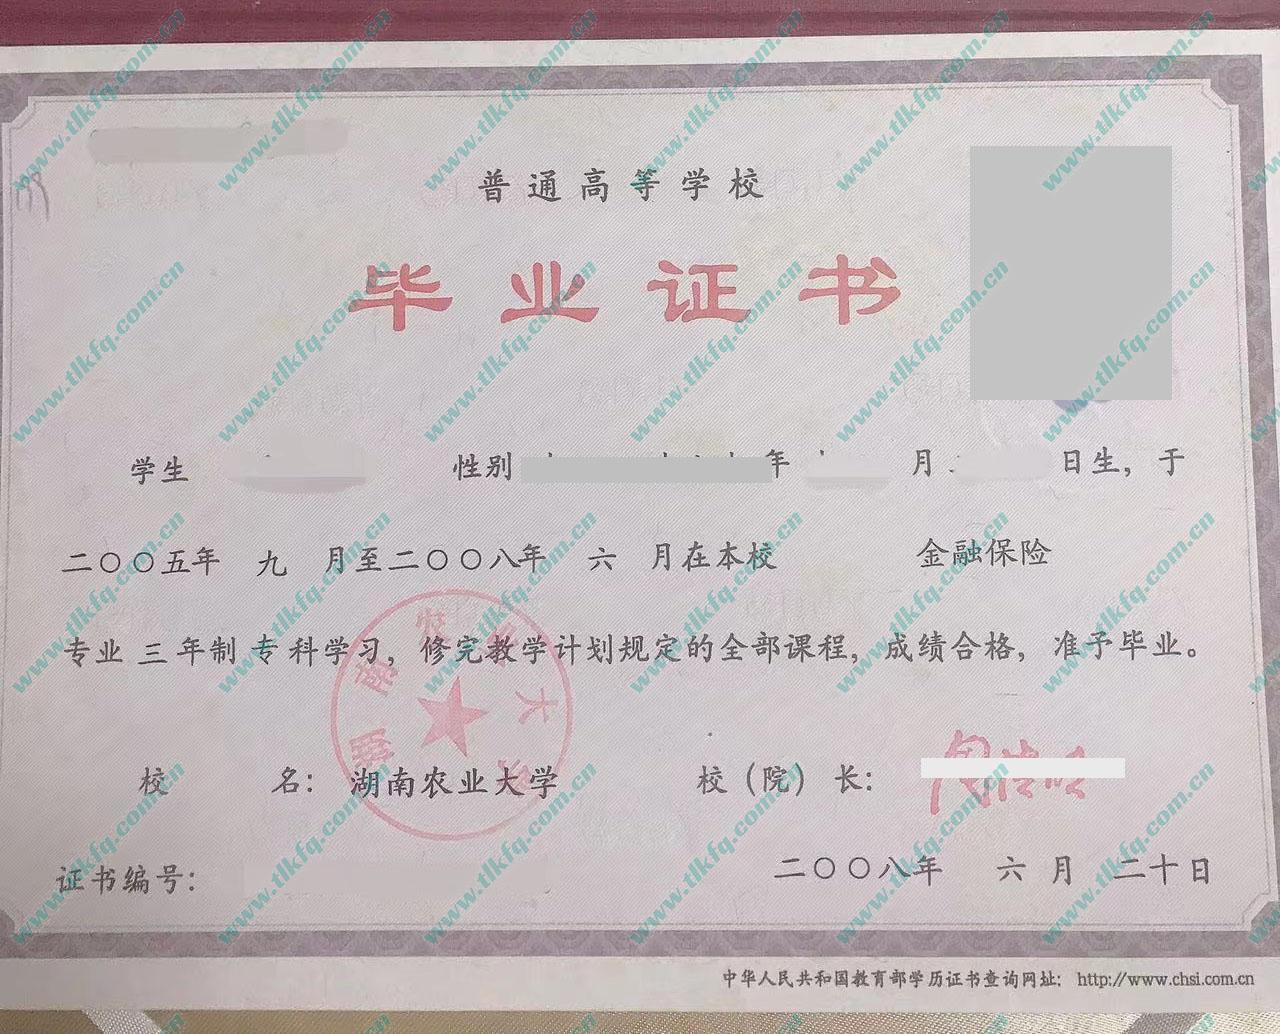 普通高等学校
毕业证书
学生 性别 年 月 日生，于
二〇〇五年 九 月至二〇〇八年 六 月在本校 金融保险
专业 三 年制 专科学习，修完教学计划规定的全部课程，成绩合格，准予毕业。
校 名：湖南农业大学 校（院）长：
湖南农业大学
证书编号： 二〇〇八年 六 月 二十日
中华人民共和国教育部学历证书查询网址：http://www.chsi.com.cn
www.tlkfq.com.cn